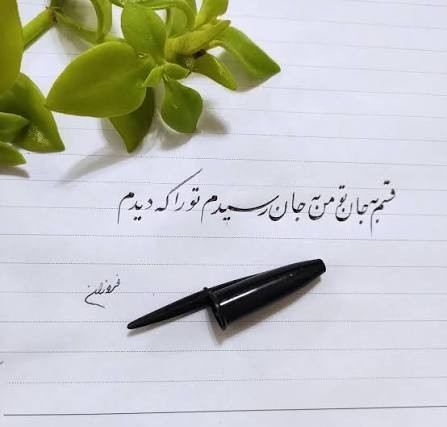 قسم به جان تو من به جان رسیدم تو را که دیدم
فروزان